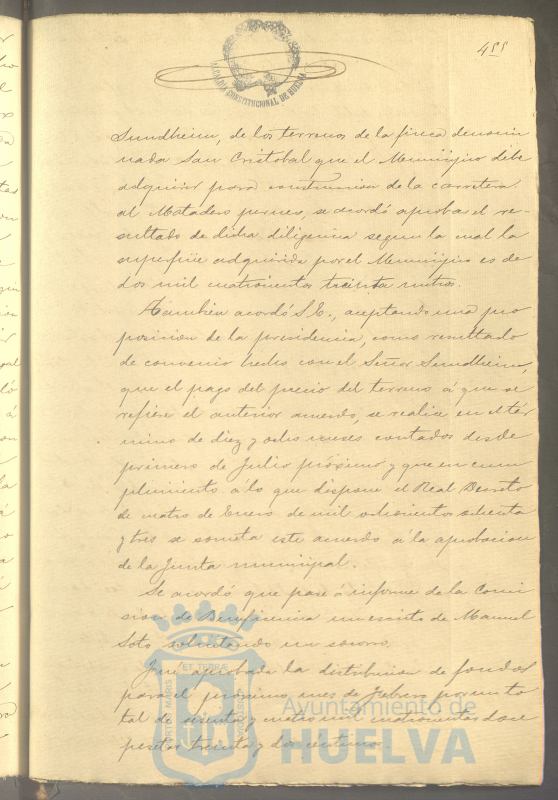 455
ALCALDIA CONSTITUCIONAL DE HUELVA
Sundheim, de los terrenos de la finca denomi
nada San Cristobal que el Municipio debe
adquirir para construccion de la carretera
al Matadero , se acordó aprobar el re-
sultado de dicha diligencia segun la cual la
superficie adquirida por el Municipio es de
dos mil cuatrocientos treinta metros.
Tambien acordó S.E., aceptando una pro
posicion de la presidencia, como resultado
de convenio hecho con el Señor Sundheim,
que el pago del precio del terreno á que se
refiere el anterior acuerdo, se realice en el tér
mino de diez y ocho meses contados desde
primero de Julio próximo y que en cum
plimiento á lo que dispone el Real Decreto
de cuatro de Enero de mil ochocientos ochenta
y tres se someta este acuerdo á la aprobacion
de la Junta municipal.
Se acordó que pase á informe de la Comi
sion de Beneficencia un escrito de Manuel
Soto solicitando un socorro.
Fué aprobada la distribucion de fondos
para el próximo mes de Febrero por un to
tal de sesenta y cuatro mil cuatrocientas doce
pesetas treinta y dos céntimos.
Ayuntamiento de
HUELVA